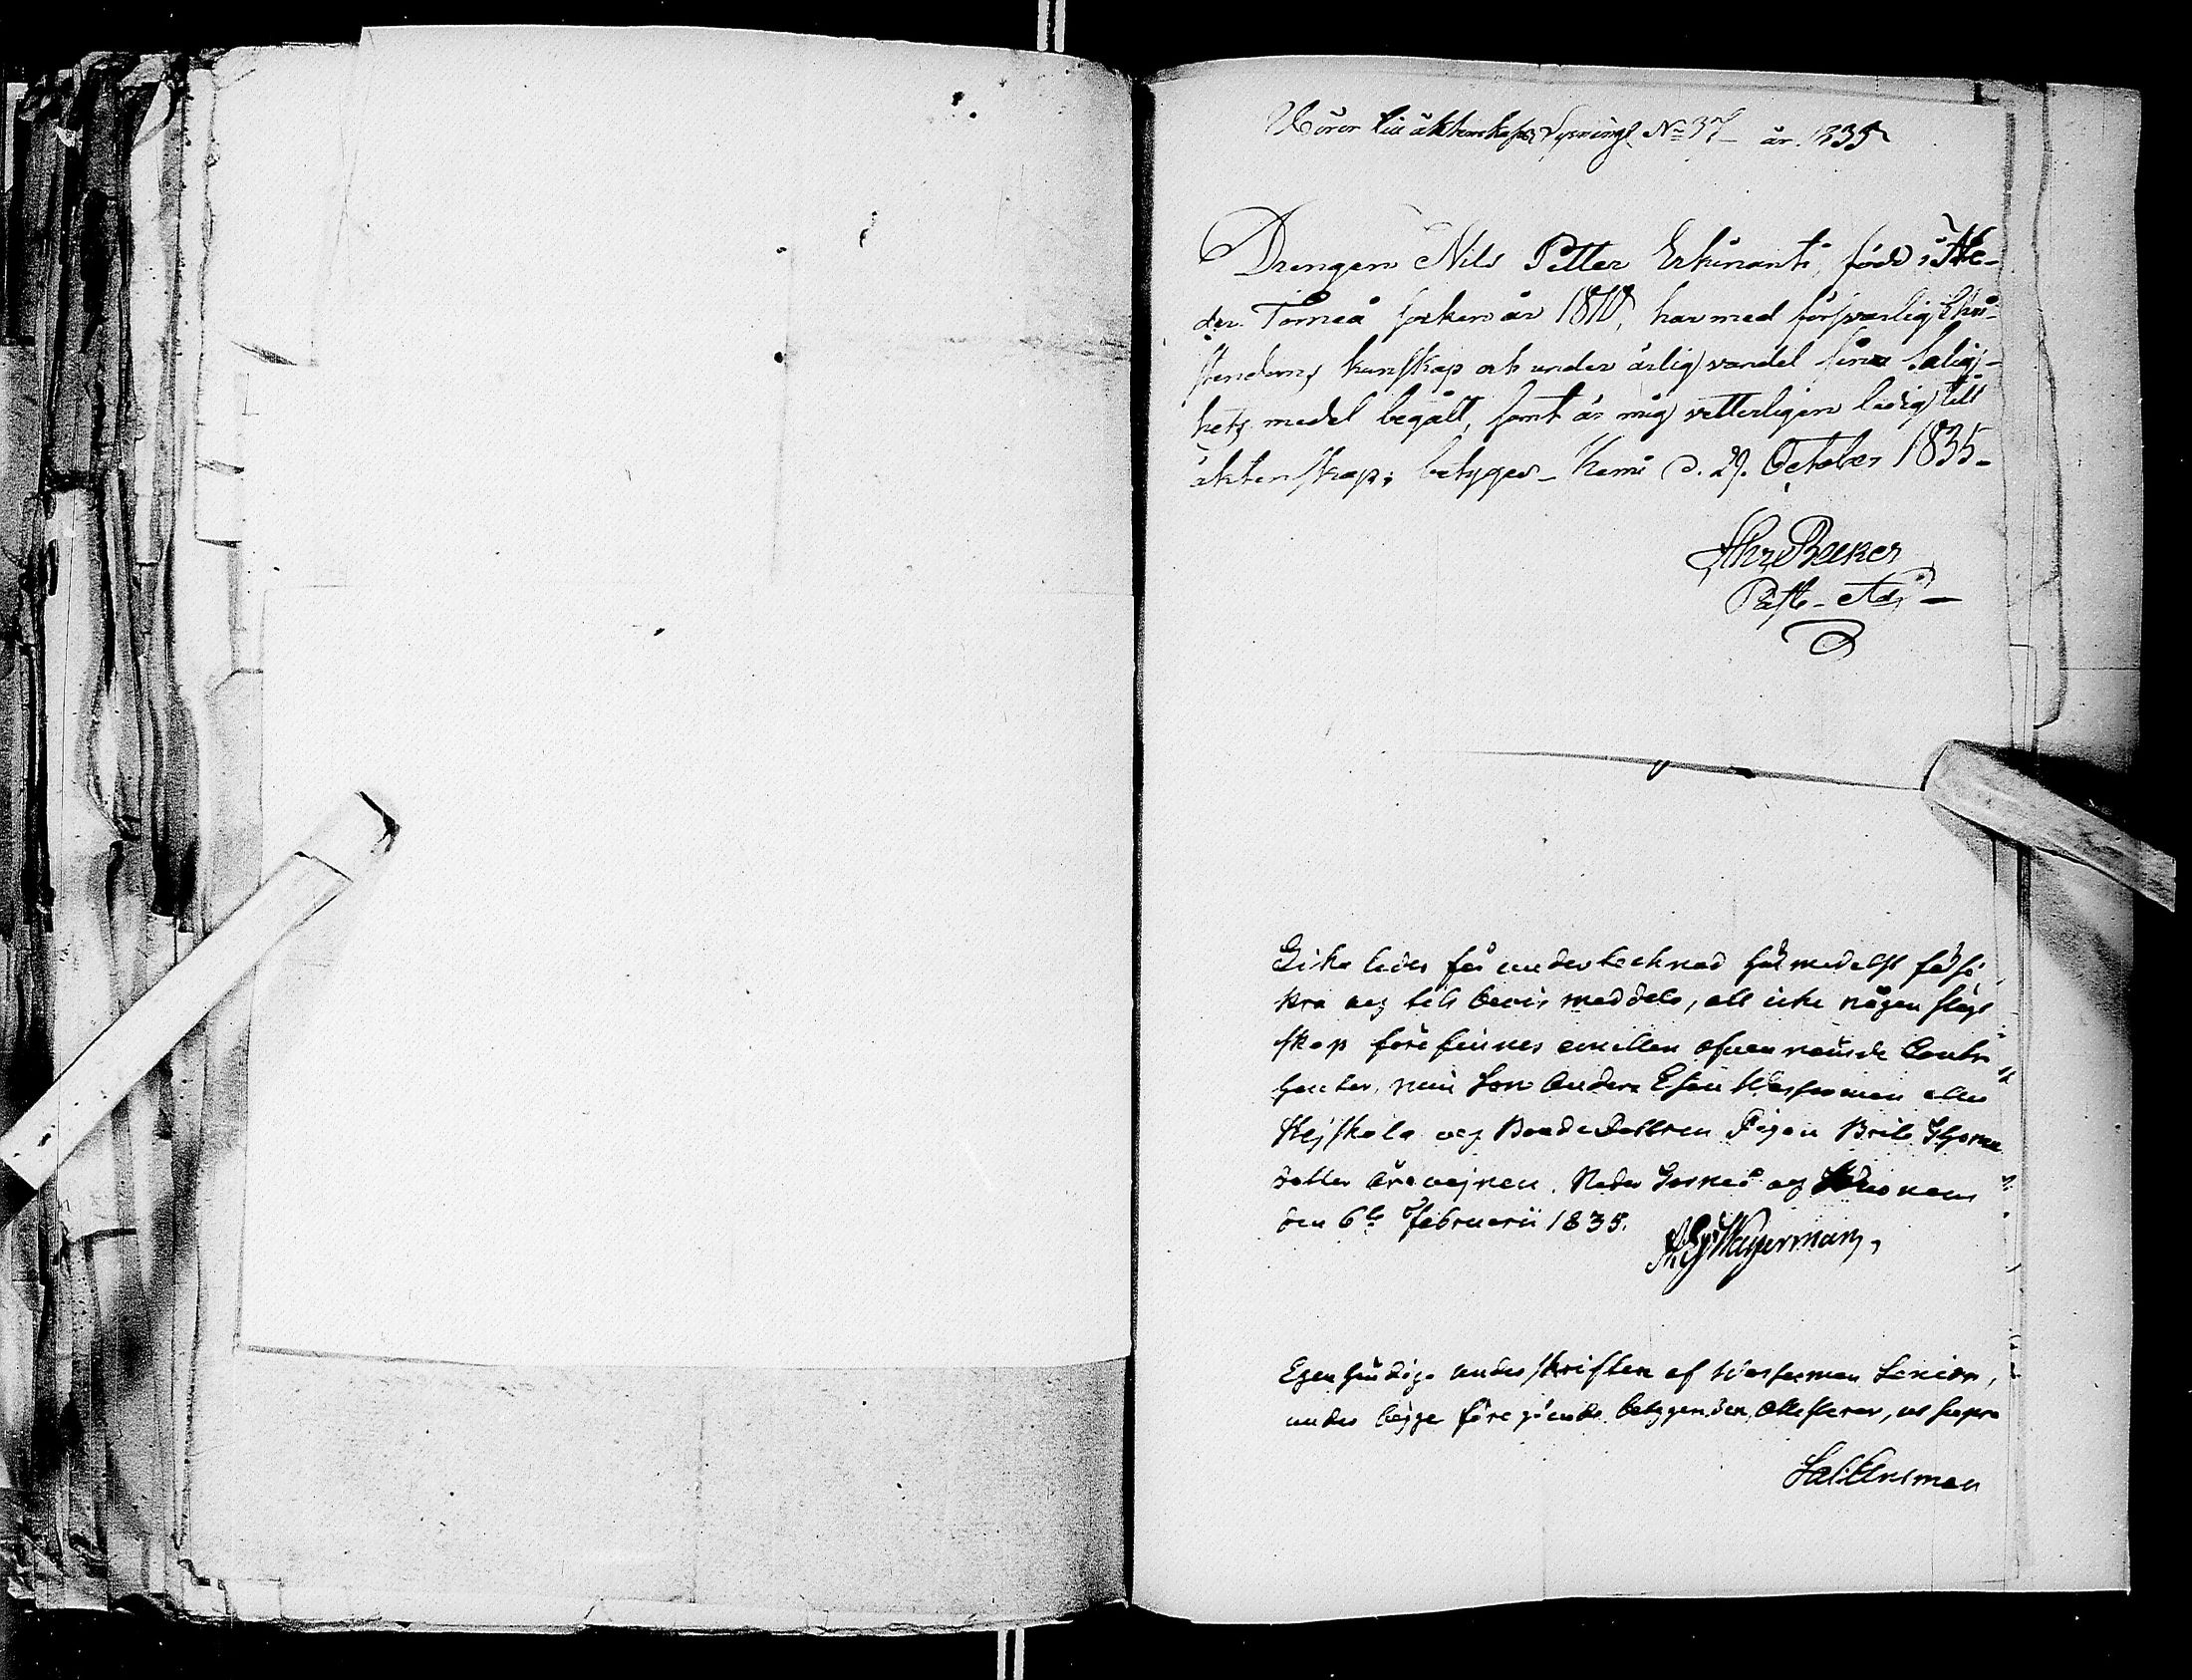 Hörer till äktenskaps Lysningl No 37 år 1835
Drengen Nils Petter Erkinanti, född i Ne-
der Torneå socken år 1810, har med försvarlig Chri-
stendoms kunskap och under ärlig vandel sina salig-
hets medel begått, samt är mig vetterligen ledig till
äktenskap; betygas _ Kemi d. 29. October 1835_
Past. Adj
Lika ledes får undertecknad härmedelst försä
kra och till bevis meddela, att icke någon slägt
skap förefinnes emellan ofvannämde Contra
henter, min Son Anders Esaii eller
och Bonde Dottren Pigan Brita
dotter. Neder Torneå och
den 6te Februarii 1835.
Egenhändiga underskriften af Senior,
under begge föregående betyganden attesterar, ut supra